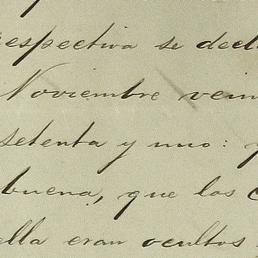 respectiva se decl
Noviembre vein
setenta y uno:
buena, que los c
ella eran ocultos